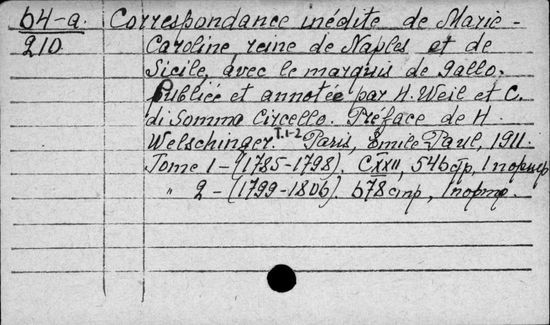 64-a. Correspondance inédite de Marie-
210 Caroline reine de Naples et de
Sicile, avec le marquis de Gallo.
Publiée et annotée par H. Weil et C.
di Somma Circello. Préface de H.
Welschinger. T.1-2 Paris, Emile Paul, 1911.
Tome 1-(1785-1798). CXXII, 546 стр, 1 портр
" 2-(1799-1806). 678 стр, 1 портр.